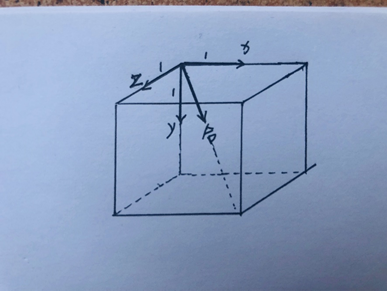 1
1
x
z
1
y